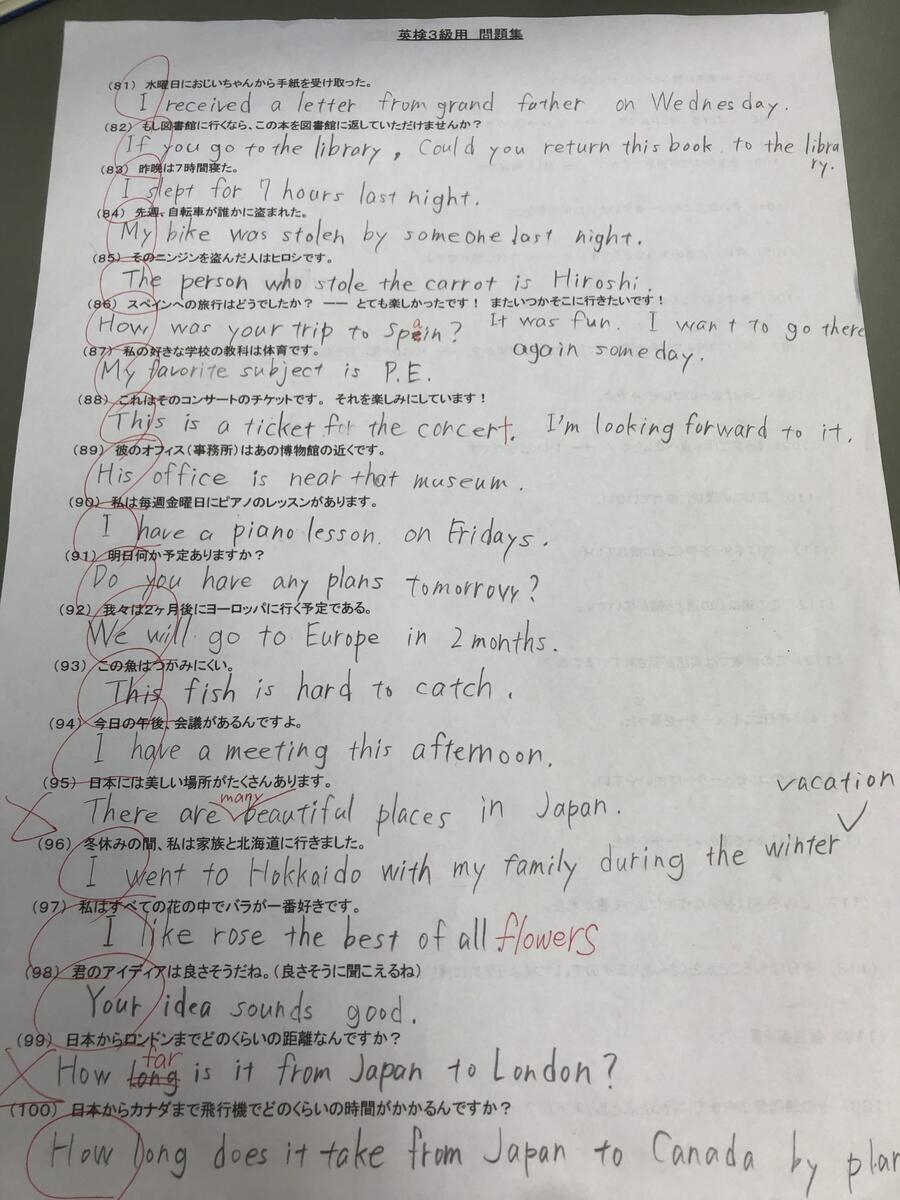 英検3級用 問題集
(81) 水曜日におじいちゃんから手紙を受け取った。
I received a letter from grand father on Wednesday.
(82) もし図書館に行くなら、この本を図書館に返していただけませんか?
If you go to the library, Could you return this book to the libra
ry.
(83) 昨晩は7時間寝た。
I slept for 7 hours last night.
(84) 先週、自転車が誰かに盗まれた。
My bike was stolen by someone last night.
(85) そのニンジンを盗んだ人はヒロシです。
The person who stole the carrot is Hiroshi.
(86) スペインへの旅行はどうでしたか? ―― とても楽しかったです! またいつかそこに行きたいです!
How was your trip to Spain? It was fun. I want to go there
again someday.
(87) 私の好きな学校の教科は体育です。
My favorite subject is P.E.
(88) これはそのコンサートのチケットです。 それを楽しみにしています!
This is a ticket for the concert. I'm looking forward to it.
(89) 彼のオフィス(事務所)はあの博物館の近くです。
His office is near that museum.
(90) 私は毎週金曜日にピアノのレッスンがあります。
I have a piano lesson on Fridays.
(91) 明日何か予定ありますか?
Do you have any plans tomorrow?
(92) 我々は2ヶ月後にヨーロッパに行く予定である。
We will go to Europe in 2 months.
(93) この魚はつかみにくい。
This fish is hard to catch.
(94) 今日の午後、会議があるんですよ。
I have a meeting this afternoon.
(95) 日本には美しい場所がたくさんあります。
many
There are beautiful places in Japan.
vacation
(96) 冬休みの間、私は家族と北海道に行きました。
I went to Hokkaido with my family during the winter
(97) 私はすべての花の中でバラが一番好きです。
I like rose the best of all flowers
(98) 君のアイディアは良さそうだね。(良さそうに聞こえるね)
Your idea sounds good.
(99) 日本からロンドンまでどのくらいの距離なんですか?
far
How long is it from Japan to London?
(100) 日本からカナダまで飛行機でどのくらいの時間がかかるんですか?
How long does it take from Japan to Canada by plan